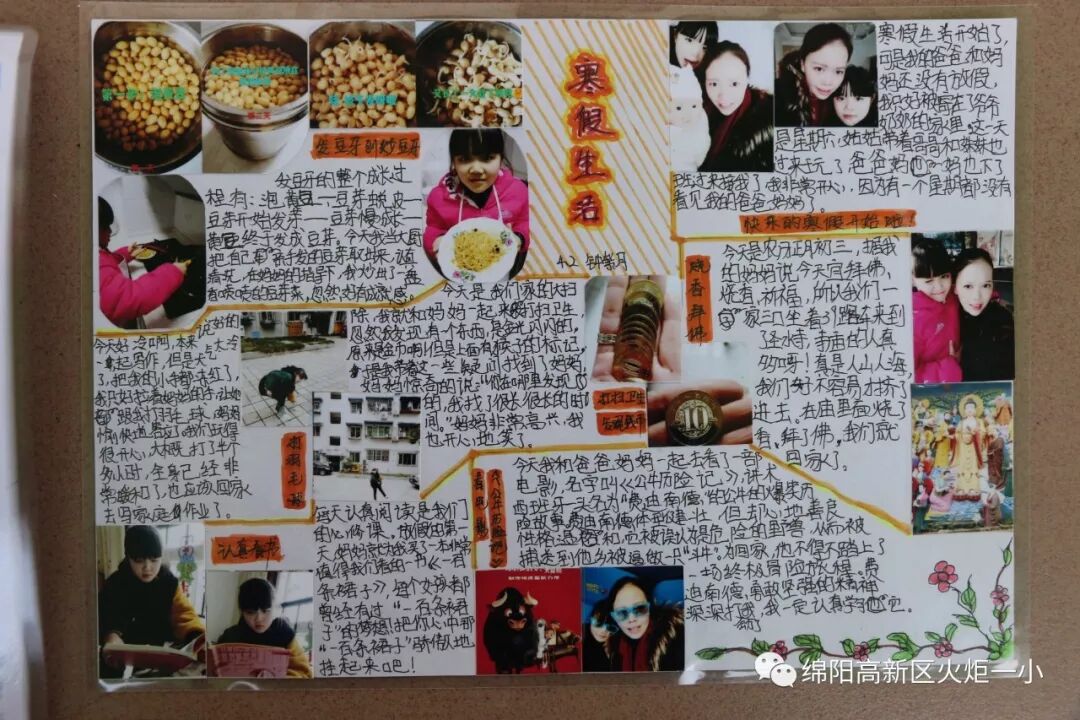 寒假生活
4.2 钟紫月
发豆牙到炒豆牙
发豆牙的整个成长过
程有：泡黄豆一豆芽蜕皮一
豆芽开始发芽一豆芽慢成长一
黄豆终于发成豆芽。今天我当大厨
把自己
发的豆芽取出来，认真
清洗，在妈妈的指导下，我炒出了一盘
香喷喷的豆芽菜，忽然好有成就感。
寒假生活开始了，
可是我的爸爸和妈
妈还没有放假，
我只好被寄在爷爷
奶奶的家里。这一天
是星期六，姑姑带着哥哥和妹妹也
过来玩了，爸爸妈妈也下了
班过来接我了，我非常开心，因为有一个星期都没有
看见我的爸爸妈妈了。
快乐的寒假开始啦！
烧香拜佛
今天是农历正月初三，据我
的妈妈说，今天宜拜佛，
烧香，祈福，所以我们一
家三口坐着39路车来到
了圣水寺，寺庙的人真
多呀！真是人山人海，
我们好不容易才挤了
进去。在庙里面烧了
香，拜了佛。我们就
回家了。
今天是我们家的大扫
除，我就和妈妈一起来打扫卫生，
忽然我发现有个东西，是金光闪闪的，
原来是金币啊！但是上面有猴子的标记，
我带着这一些疑问找到了妈妈，
妈妈惊奇的说："你在哪里发现
的，我找了很长很长的时
间。"妈妈非常高兴，我
也开心地笑了。
打扫卫生
发现钱币
今天好冷啊，本来说好的
一起写作，但是天气太冷
了，把我的小手都冻红了，
我只好
着妈妈的手，让她
跟我打羽毛球，妈妈
愉快地答应了。我们玩得
很开心，大概打了半个
多小时，全身已经非
常暖和了，也应该回家
去写家庭作业了。
打羽毛球
认真看书
每天认真阅读是我们
的必修课。放假的第一
天妈妈就为我买了一本非常
值得我们看的书《一百
条裙子》，每个女孩都
曾经有过"一百条裙
子"的梦想，把你心中那
"一百条裙子"骄傲地
挂起来吧！
看电影
《公牛历险记》
今天我和爸爸妈妈一起去看了一部
电影，名字叫《公牛历险记》，讲术
西班牙一头名为"费迪南德"的公牛的爆笑历
险故事，费迪南德体型健壮，但却心地善良
性格温和，它被误以为是危险的野兽，从而被
捕送到他乡被逼做一叫"斗牛"。为回家，他不得不踏上了
一场终极冒险旅程。费
迪南德，勇敢坚强的精神
深深打动了我，我一定认真学习它吧。
绵阳高新区火炬一小